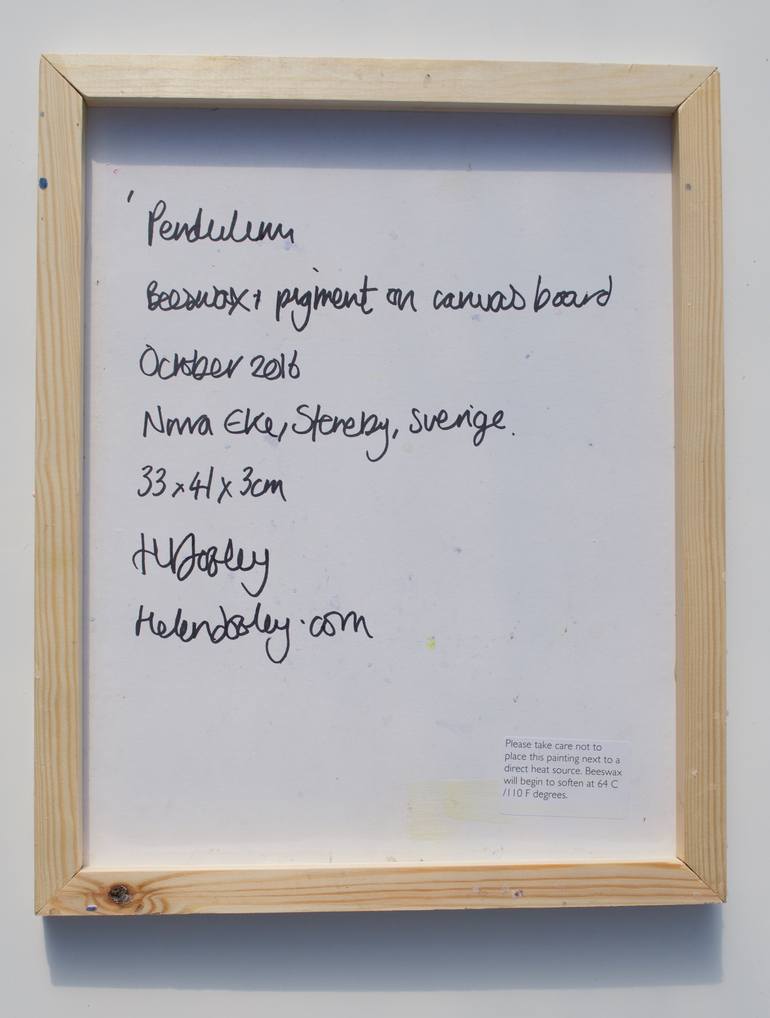 ' Pendulum
Beeswax + pigment on canvas board
October 2016
Eke, Steneby, Sverige.
33 x 41 x 3cm
Helendooley.com
Please take care not to
place this painting next to a
direct heat source. Beeswax
will begin to soften at 64 C
/110 F degrees.